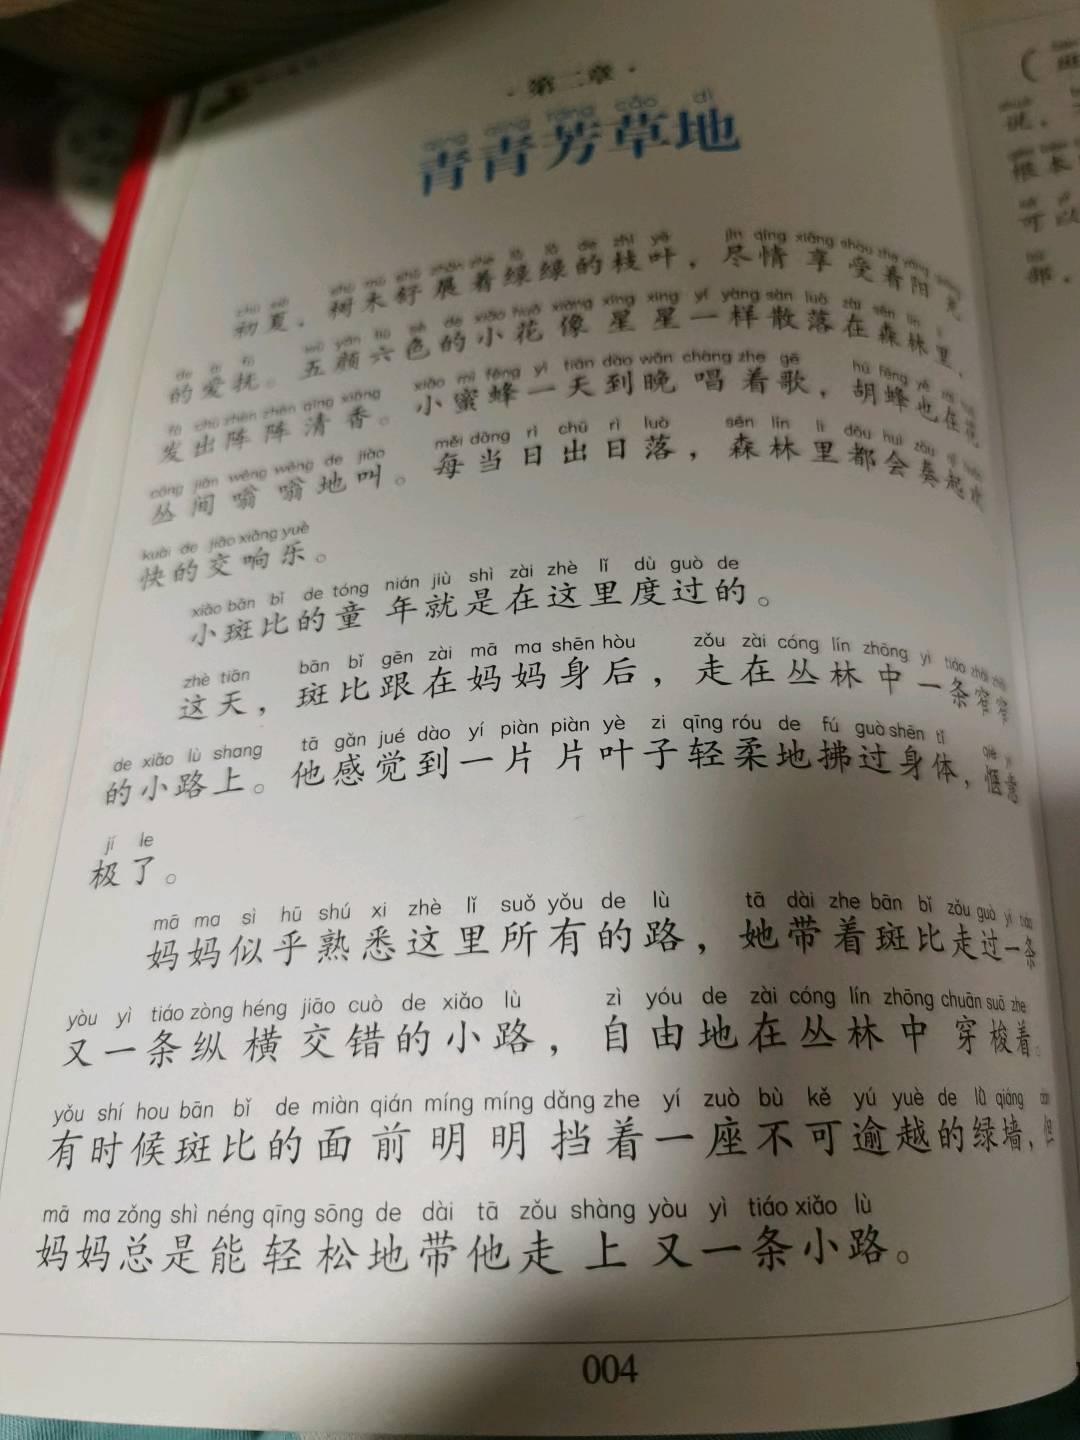 ·第二章·
qīng qīng fāng cǎo dì
青青芳草地
chū xià shù mù shū zhǎn zhe lǜ lǜ de zhī yè jìn qíng xiǎng shòu zhe yáng guāng
初夏，树木舒展着绿绿的枝叶，尽情享受着阳光
de ài fǔ wǔ yán liù sè de xiǎo huā xiàng xīng xing yí yàng sàn luò zài sēn lín lǐ
的爱抚。五颜六色的小花像星星一样散落在森林里，
fā chū zhèn zhèn qīng xiāng xiǎo mì fēng yì tiān dào wǎn chàng zhe gē hú fēng yě zài
发出阵阵清香。小蜜蜂一天到晚唱着歌，胡蜂也在花
cóng jiān wēng wēng de jiào měi dāng rì chū rì luò sēn lín lǐ dōu huì zòu qǐ
丛间嗡嗡地叫。每当日出日落，森林里都会奏起欢
kuài de jiāo xiǎng yuè
快的交响乐。
xiǎo bān bǐ de tóng nián jiù shì zài zhè lǐ dù guò de
小斑比的童年就是在这里度过的。
zhè tiān bān bǐ gēn zài mā ma shēn hòu zǒu zài cóng lín zhōng yì tiáo zhǎi zhǎi
这天，斑比跟在妈妈身后，走在丛林中一条窄窄
de xiǎo lù shang tā gǎn jué dào yí piàn piàn yè zi qīng róu de fú guò shēn tǐ qiè yì
的小路上。他感觉到一片片叶子轻柔地拂过身体，惬意
jí le
极了。
mā ma sì hū shú xi zhè lǐ suǒ yǒu de lù tā dài zhe bān bǐ zǒu guò yì tiáo
妈妈似乎熟悉这里所有的路，她带着斑比走过一条
yòu yì tiáo zòng héng jiāo cuò de xiǎo lù zì yóu de zài cóng lín zhōng chuān suō zhe
又一条纵横交错的小路，自由地在丛林中穿梭着。
yǒu shí hou bān bǐ de miàn qián míng míng dǎng zhe yí zuò bù kě yú yuè de lǜ qiáng dàn
有时候斑比的面前明明挡着一座不可逾越的绿墙，但
mā ma zǒng shì néng qīng sōng de dài tā zǒu shàng yòu yì tiáo xiǎo lù
妈妈总是能轻松地带他走上又一条小路。
004
说，
根本
可以
部，